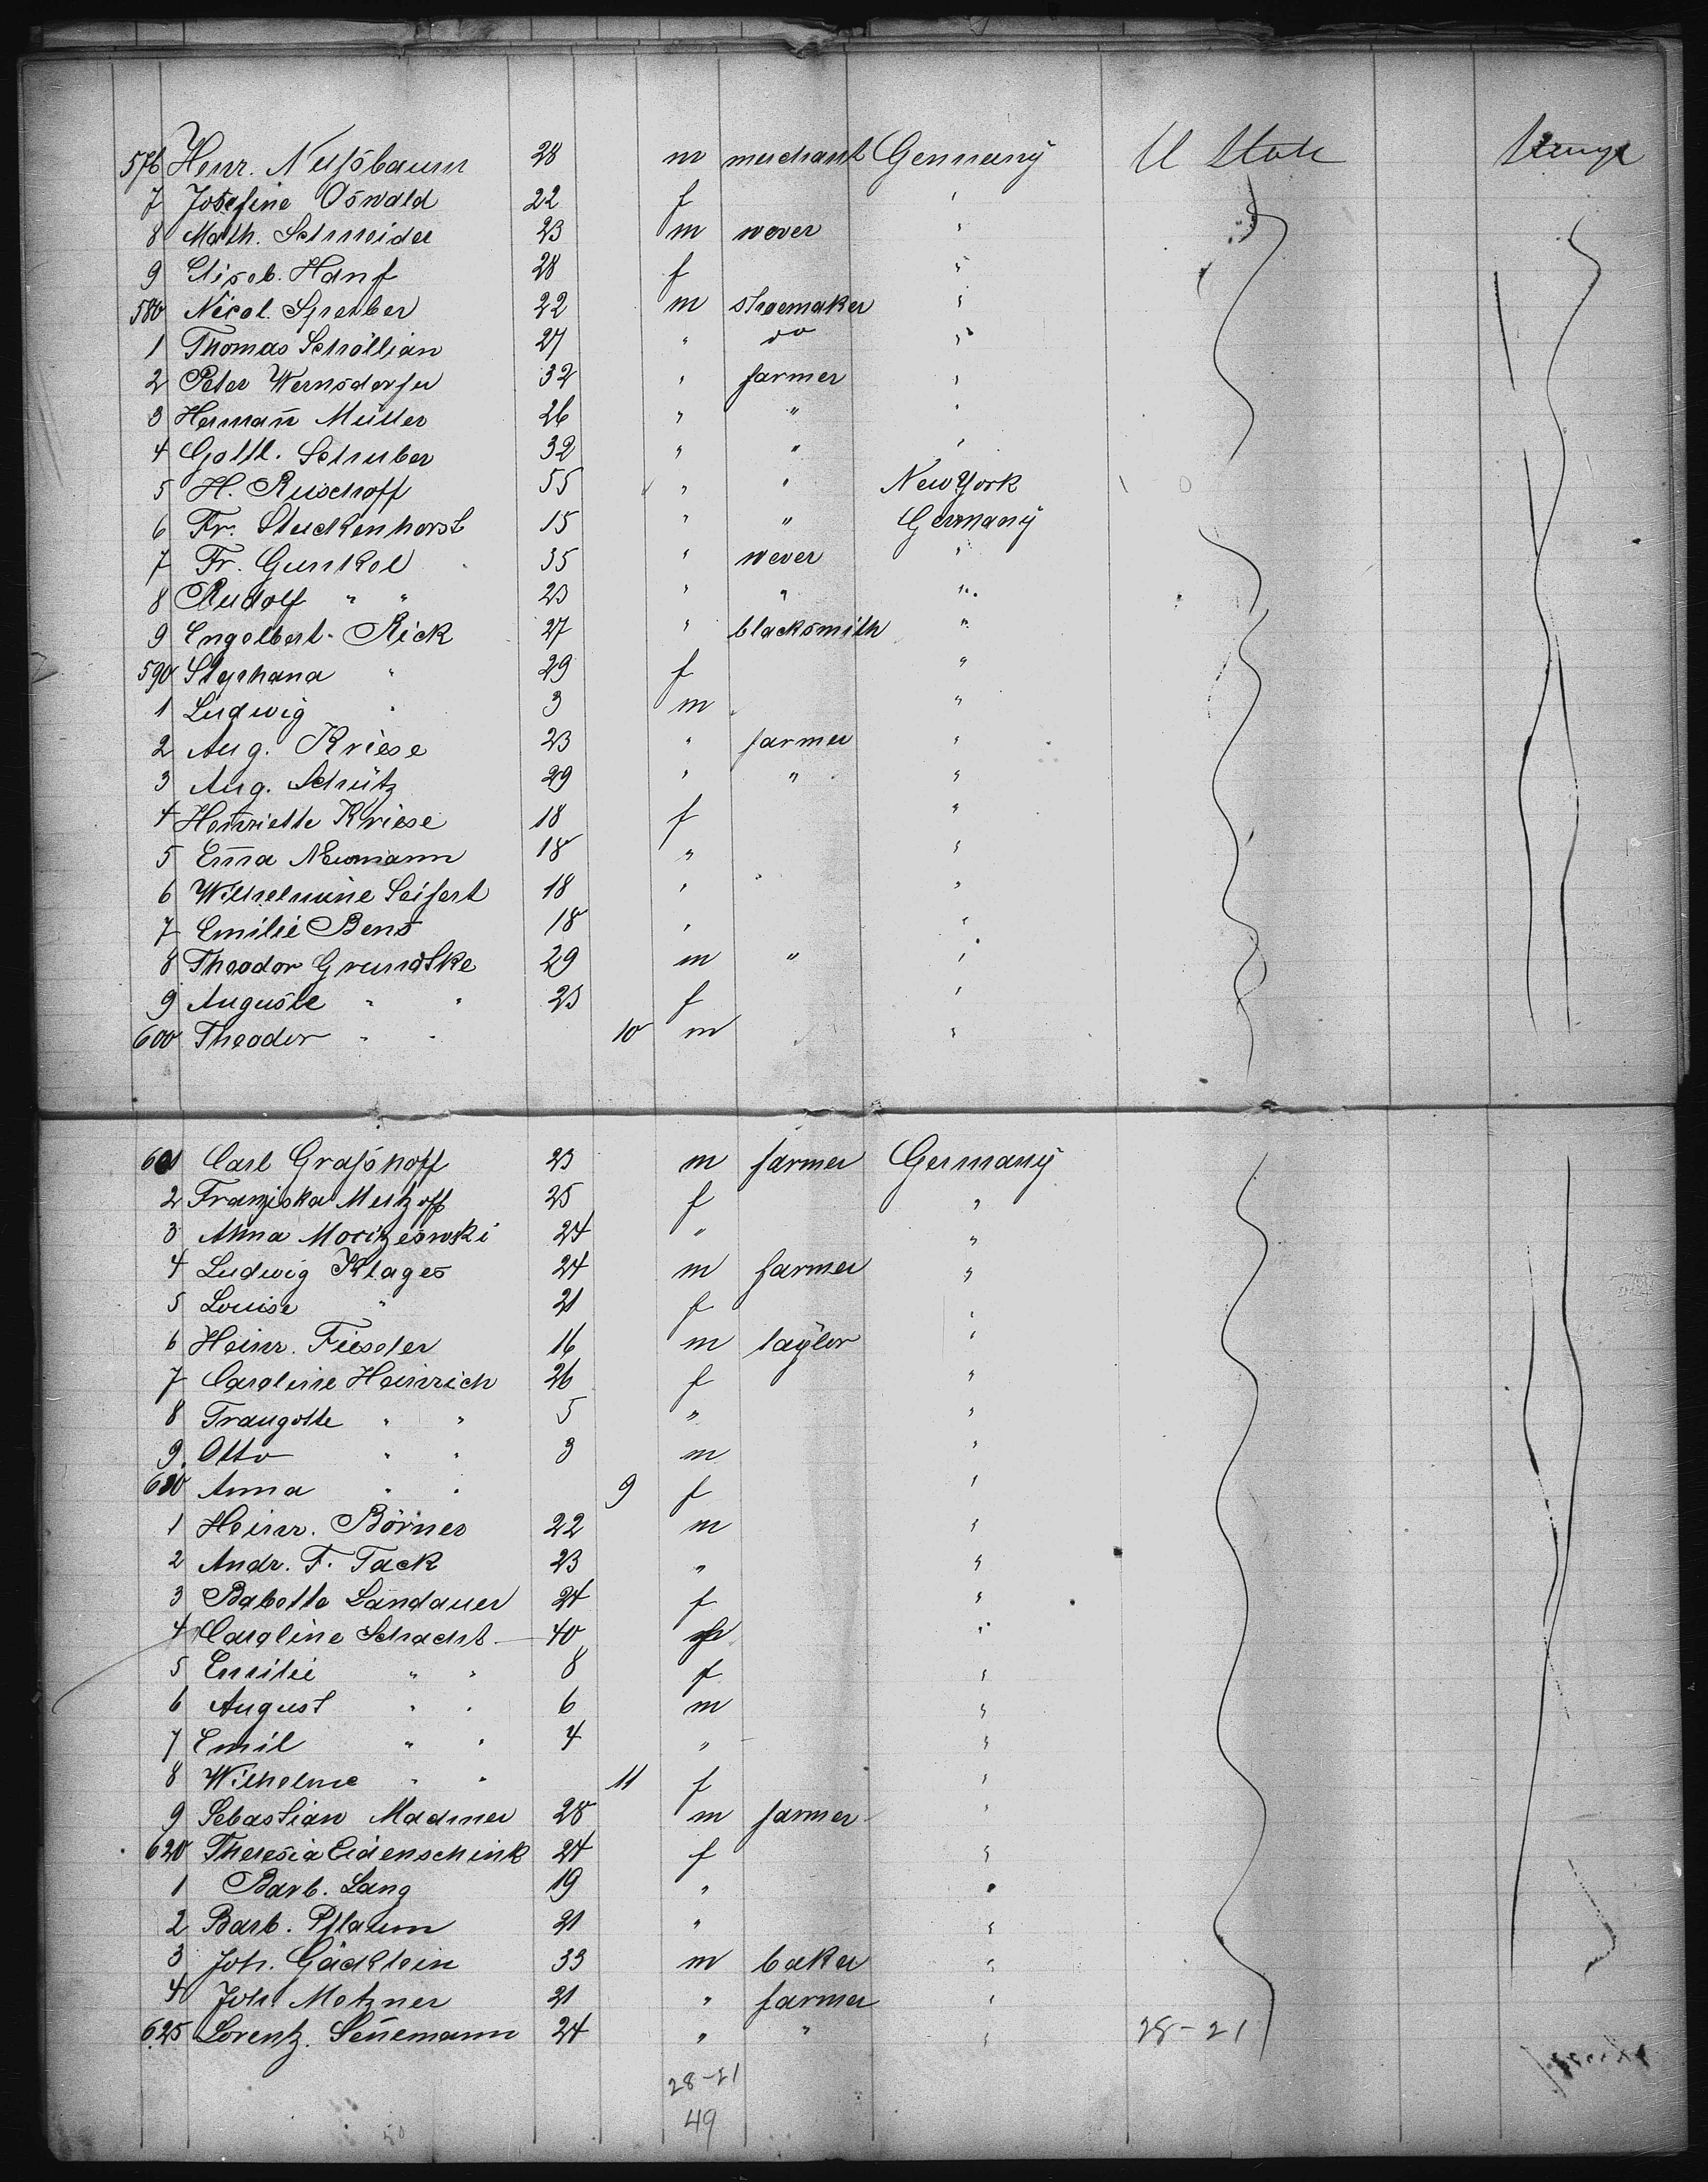 576 Henr. Nußbaum 28 m merchant Germany U State Steerage
7 Josefine Oswald 22 f "
8 Math. Schneider 23 m wever "
9 Elisab. Hanf 28 f "
580 Nicol. Sperber 22 m shoemaker "
1 Thomas Schöllian 27 " do "
2 Peter Wernsdorfer 32 " farmer "
3 Herman̄ Müller 26 " " "
4 Gottl. Schuber 32 " " "
5 H. Ruschoff 55 " " New York
6 Fr. Stuckenhorst 15 " " Germany
7 Fr. Gunkel 35 " wever "
8 Rudolf " " 23 " " "
9 Engelbert Rick 27 " blacksmith "
590 Stephana " 29 f "
1 Ludwig " 3 m "
2 Aug. Kriese 23 " farmer "
3 Aug. Schütz 29 " " "
4 Henriette Kriese 18 f "
5 Em̄a Neumann 18 " "
6 Wilhelmine Seifert 18 " "
7 Emilie Bens 18 " "
8 Theodor Grundske 29 m " "
9 Auguste " " 23 f "
600 Theodor " " 10 m "
601 Carl Graßhoff 23 m farmer Germany
2 Franziska Mertzoff 25 f "
3 Anna Moritzeswki 24 " "
4 Ludwig Klages 24 m farmer "
5 Louise " 21 f "
6 Heinr. Fieseler 16 m taylor "
7 Caroline Heinrich 26 f "
8 Traugotte " " 5 " "
9 Otto " " 3 m "
610 Anna " " 9 f "
1 Heinr. Börnes 22 m "
2 Andr. F. Tack 23 " "
3 Babette Landauer 24 f "
4 Caroline Schacht 40 f "
5 Emilie " " 8 f "
6 August " " 6 m "
7 Emil " " 4 " "
8 Wilhelme " " 11 f "
9 Sebastian Madmer 28 m farmer "
620 Theresia Eidenschink 24 f "
1 Barb. Lang 19 " "
2 Barb. Pflaum 21 " "
3 Joh. Gäcklein 33 m baker "
4 Joh. Metzner 21 " farmer "
625 Lorentz Sen̄emann 24 " " " 28-21
28-21
49
50